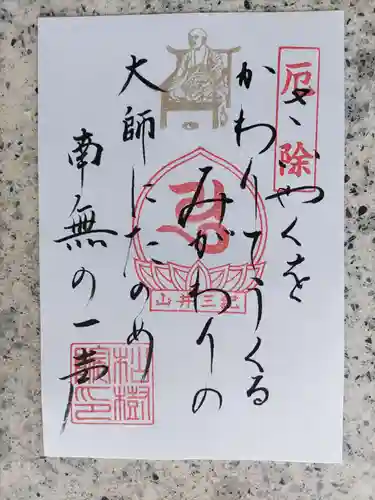 厄除
やくを
かわりてうくる
みがわりの
大師にたのめ
南無の一声
紀三井山
松樹